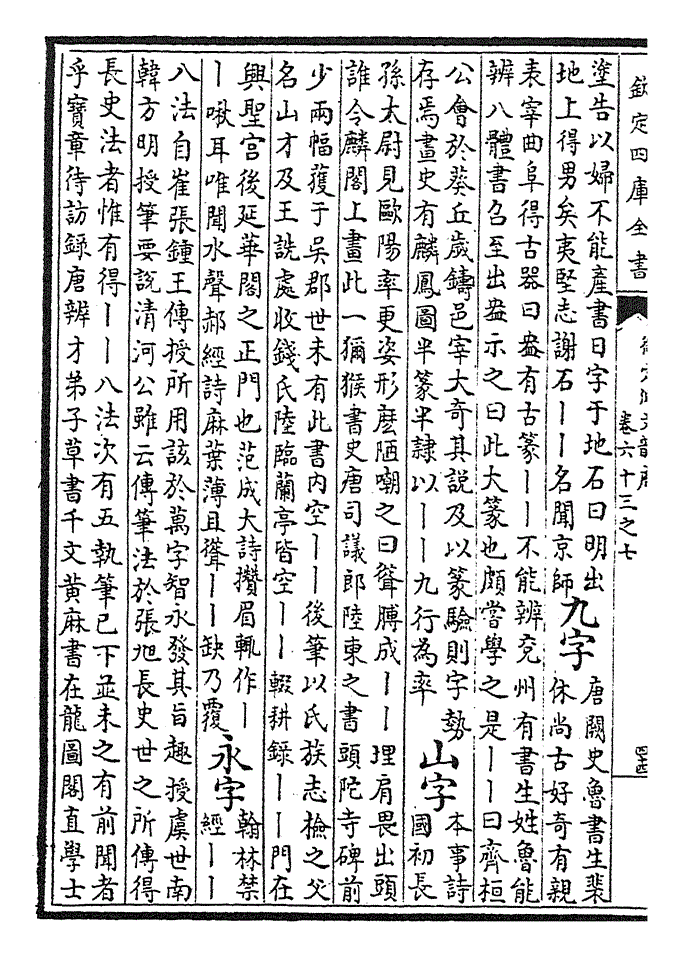 欽定四庫全書
卷六十三之七
四十四
塗告以婦不能產書日字于地石曰明出
地上得男矣夷堅志謝石丨丨名聞京師
九字
唐闕史魯書生裴
休尚古好奇有親
表宰曲阜得古器曰盎有古篆丨丨不能辨兖州有書生姓魯能
辨八體書召至出盎示之曰此大篆也頗嘗學之是丨丨曰齊桓
公會於葵丘歲鑄邑宰大奇其說及以篆驗則字勢
存焉畫史有麟鳳圖半篆半隸以丨丨九行為率
山字
本事詩
國初長
孫太尉見歐陽率更姿形麽陋嘲之曰聳膊成丨丨埋肩畏出頭
誰令麟閣上畫此一獼猴書史唐司議郎陸東之書頭陀寺碑前
少兩幅獲于吳郡世未有此書内空丨丨後筆以氏族志檢之父
名山才及王詵處收錢氏陸臨蘭亭皆空丨丨輟耕錄丨丨門在
興聖宫後延華閣之正門也范成大詩攢眉輒作丨
丨啾耳唯聞水聲郝經詩麻葉薄且聳丨丨缺乃覆
永字
翰林禁
經丨丨
八法自崔張鍾王傳授所用該於萬字智永發其旨趣授虞世南
韓方明授筆要說清河公雖云傳筆法於張旭長史世之所傳得
長史法者惟有得丨丨八法次有五執筆已下並未之有前聞者
乎寶章待訪録唐辨才弟子草書千文黄麻書在龍圖閣直學士